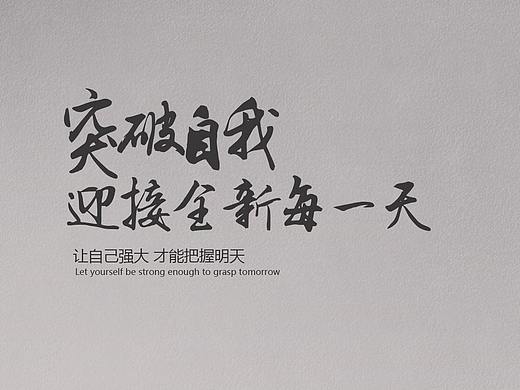 突破自我
迎接全新每一天
让自己强大 才能把握明天
Let yourself be strong enough to grasp tomorrow